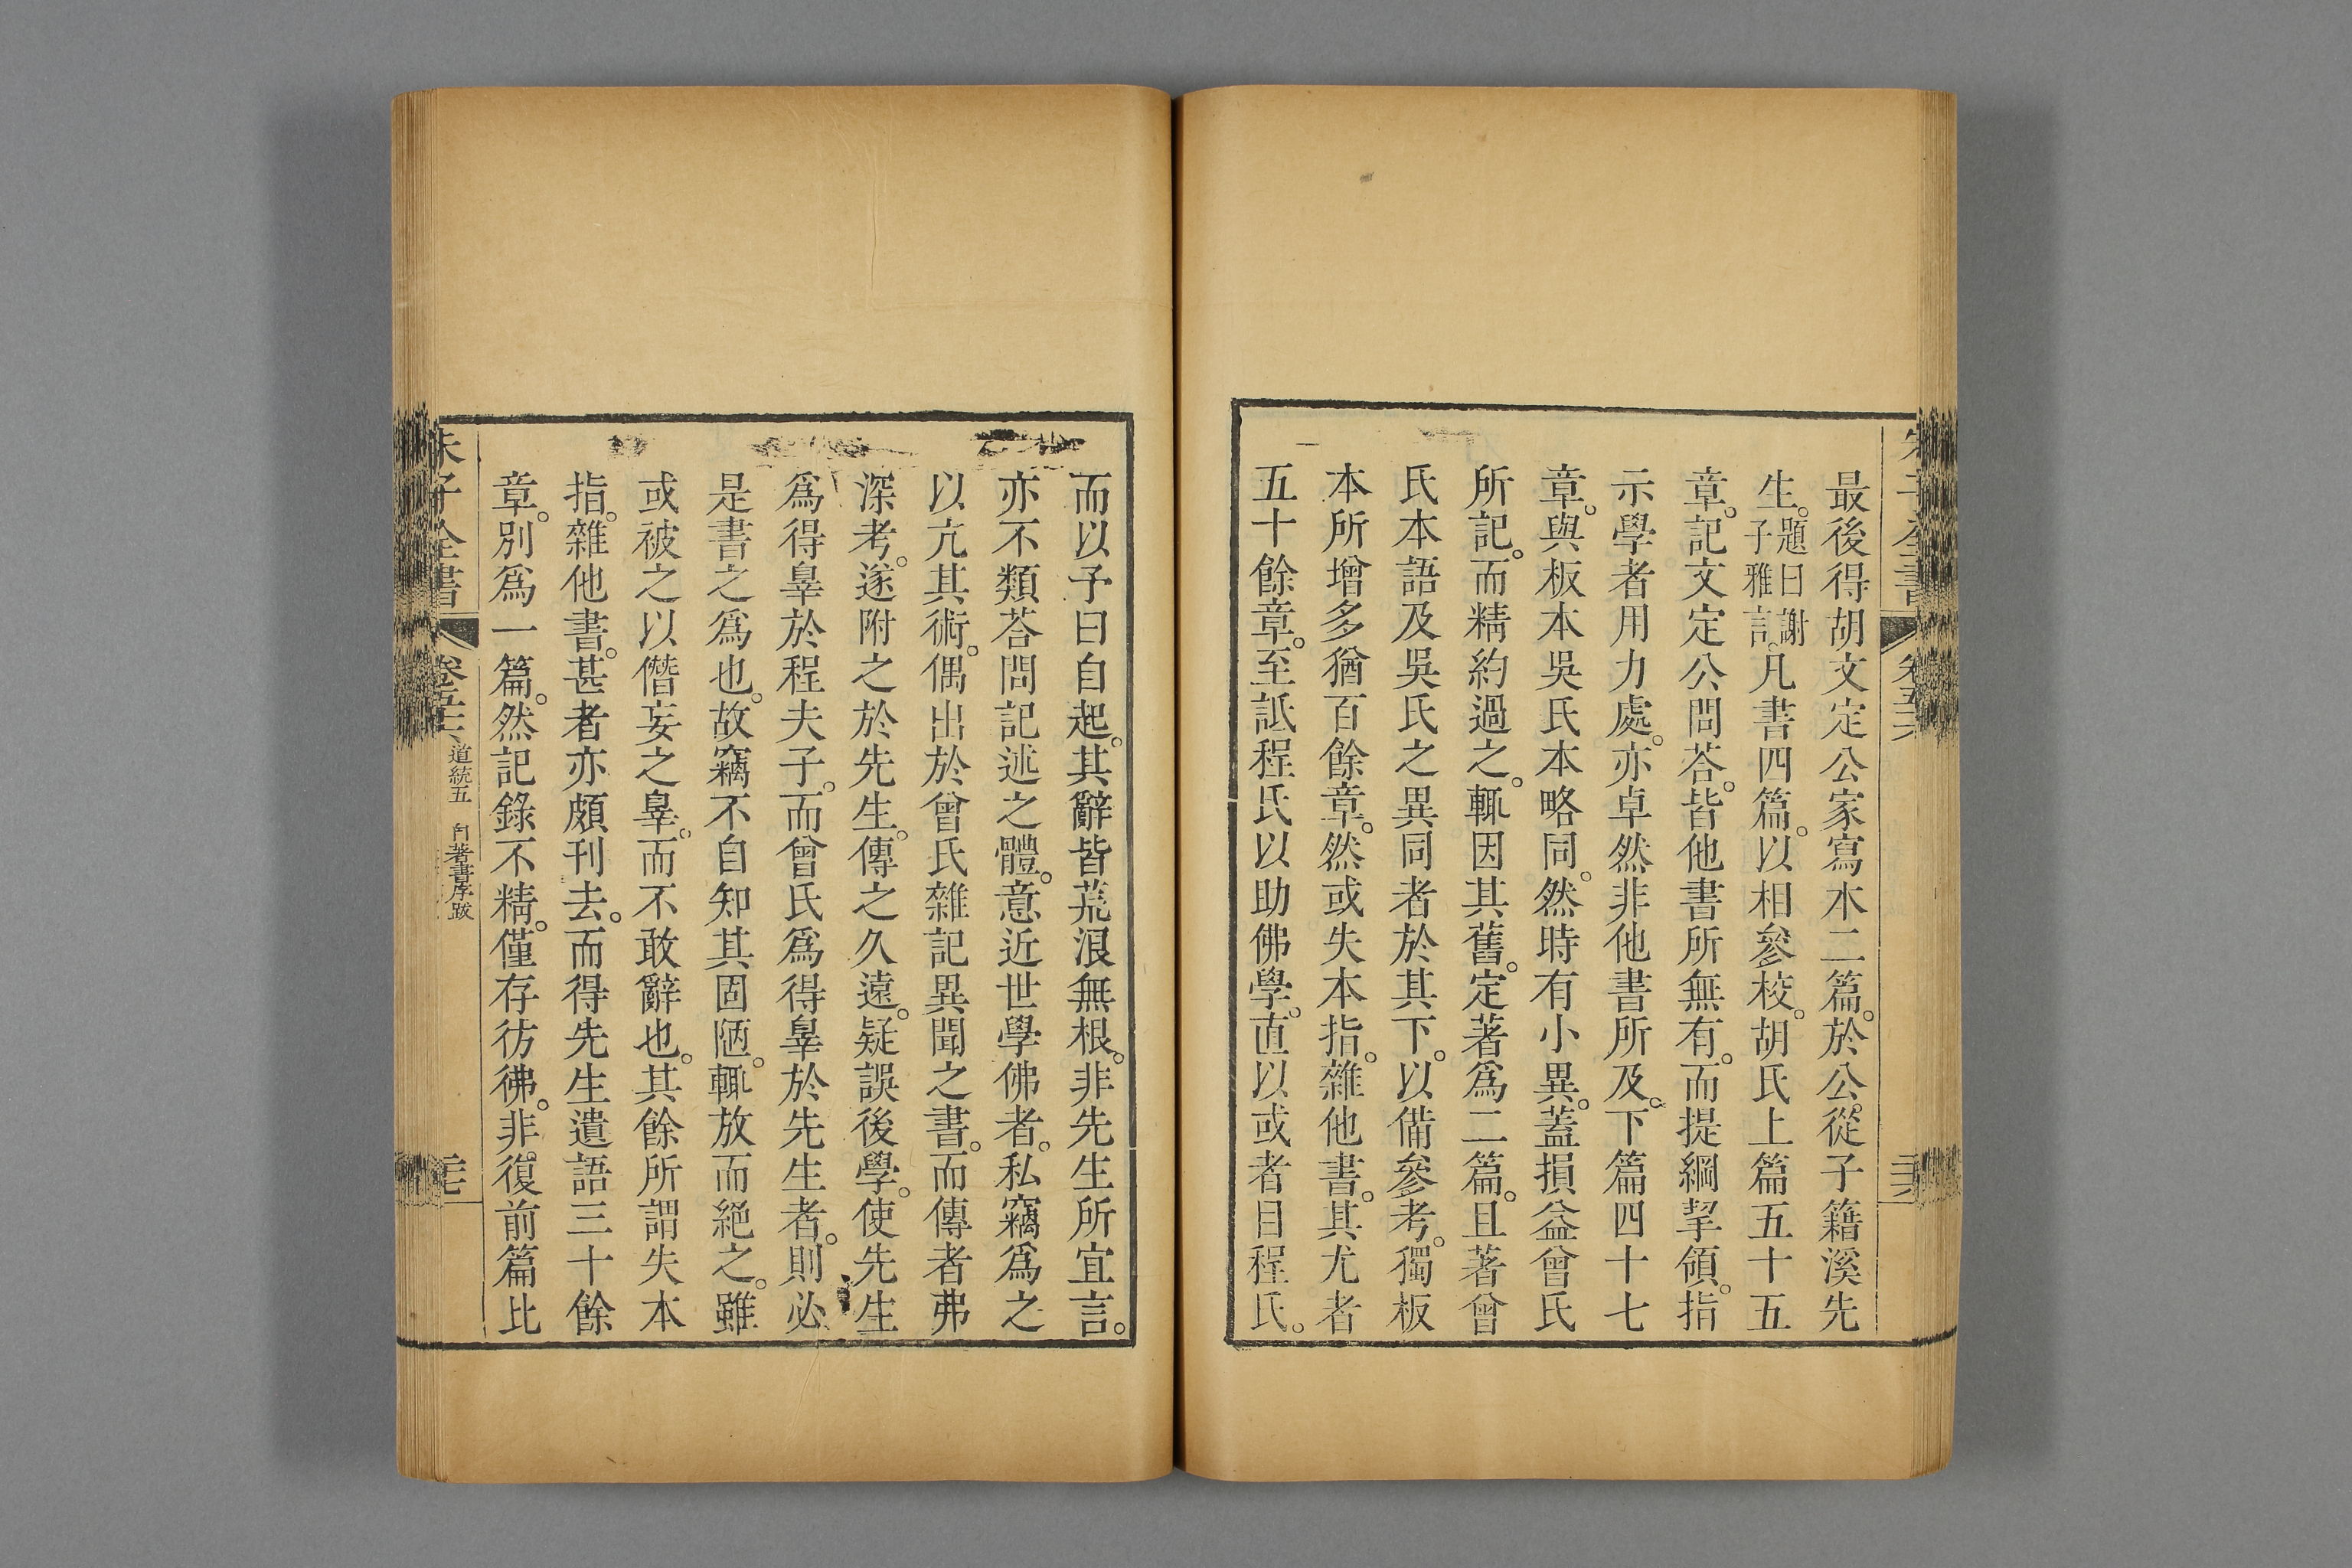 最後得胡文定公家寫本二篇。於公。從子籍溪先
生。題曰謝子雅言。凡書四篇。以相參校。胡氏上篇五十五
章。記文定公問荅。皆他書所無有。而提綱挈領。指
示學者用力處。亦卓然非他書所及。下篇四十七
章。與板本吳氏本略同。然時有小異。蓋損益曾氏
所記。而精約過之。輒因其舊。定著爲二篇。且著曾
氏本語及吳氏之異同者於其下。以備參考。獨板
本所增多猶百餘章。然或失本指。雜他書。其尤者
五十餘章。至詆程氏以助佛學。直以或者目程氏。
而以予曰自起。其辭皆荒浪無根。非先生所宜言。
亦不類荅問記述之體。意近世學佛者。私竊爲之
以亢其術。偶出於曾氏雜記異聞之書。而傳者弗
深考。遂附之於先生。傳之久遠。疑誤後學。使先生
爲得辠於程夫子。而曾氏爲得辠於先生者。則必
是書之爲也。故竊不自知其固陋。輒放而絕之。雖
或被之以僭妄之辠。而不敢辭也。其餘所謂失本
指。雜他書。甚者亦頗刊去。而得先生遺語三十餘
章。別爲一篇。然記錄不精。僅存彷彿。非。復前篇比
朱子全書
卷五十二
道統五
自著書序跋